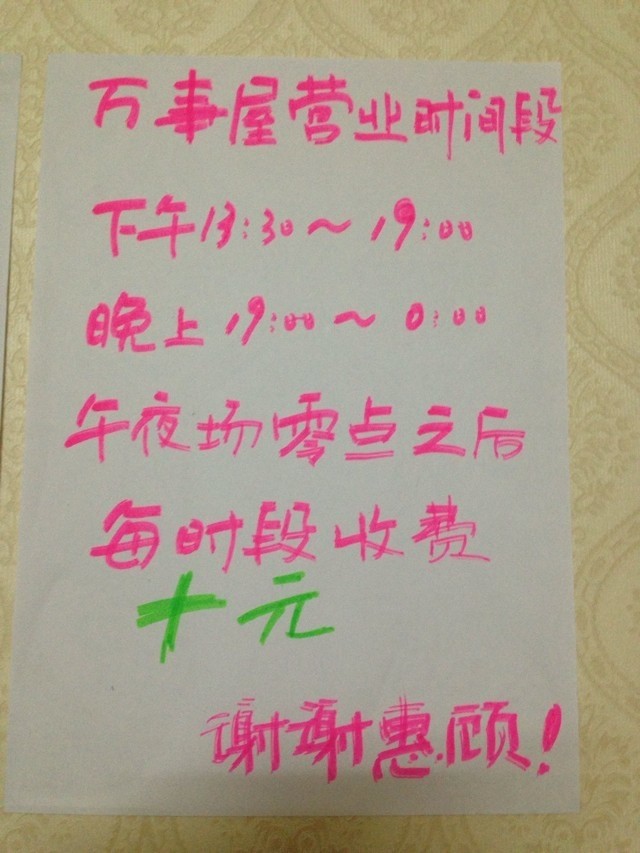 万事屋营业时间段
下午13:30~19:00
晚上19:00~0:00
午夜场零点之后
每时段收费
十元
谢谢惠顾!